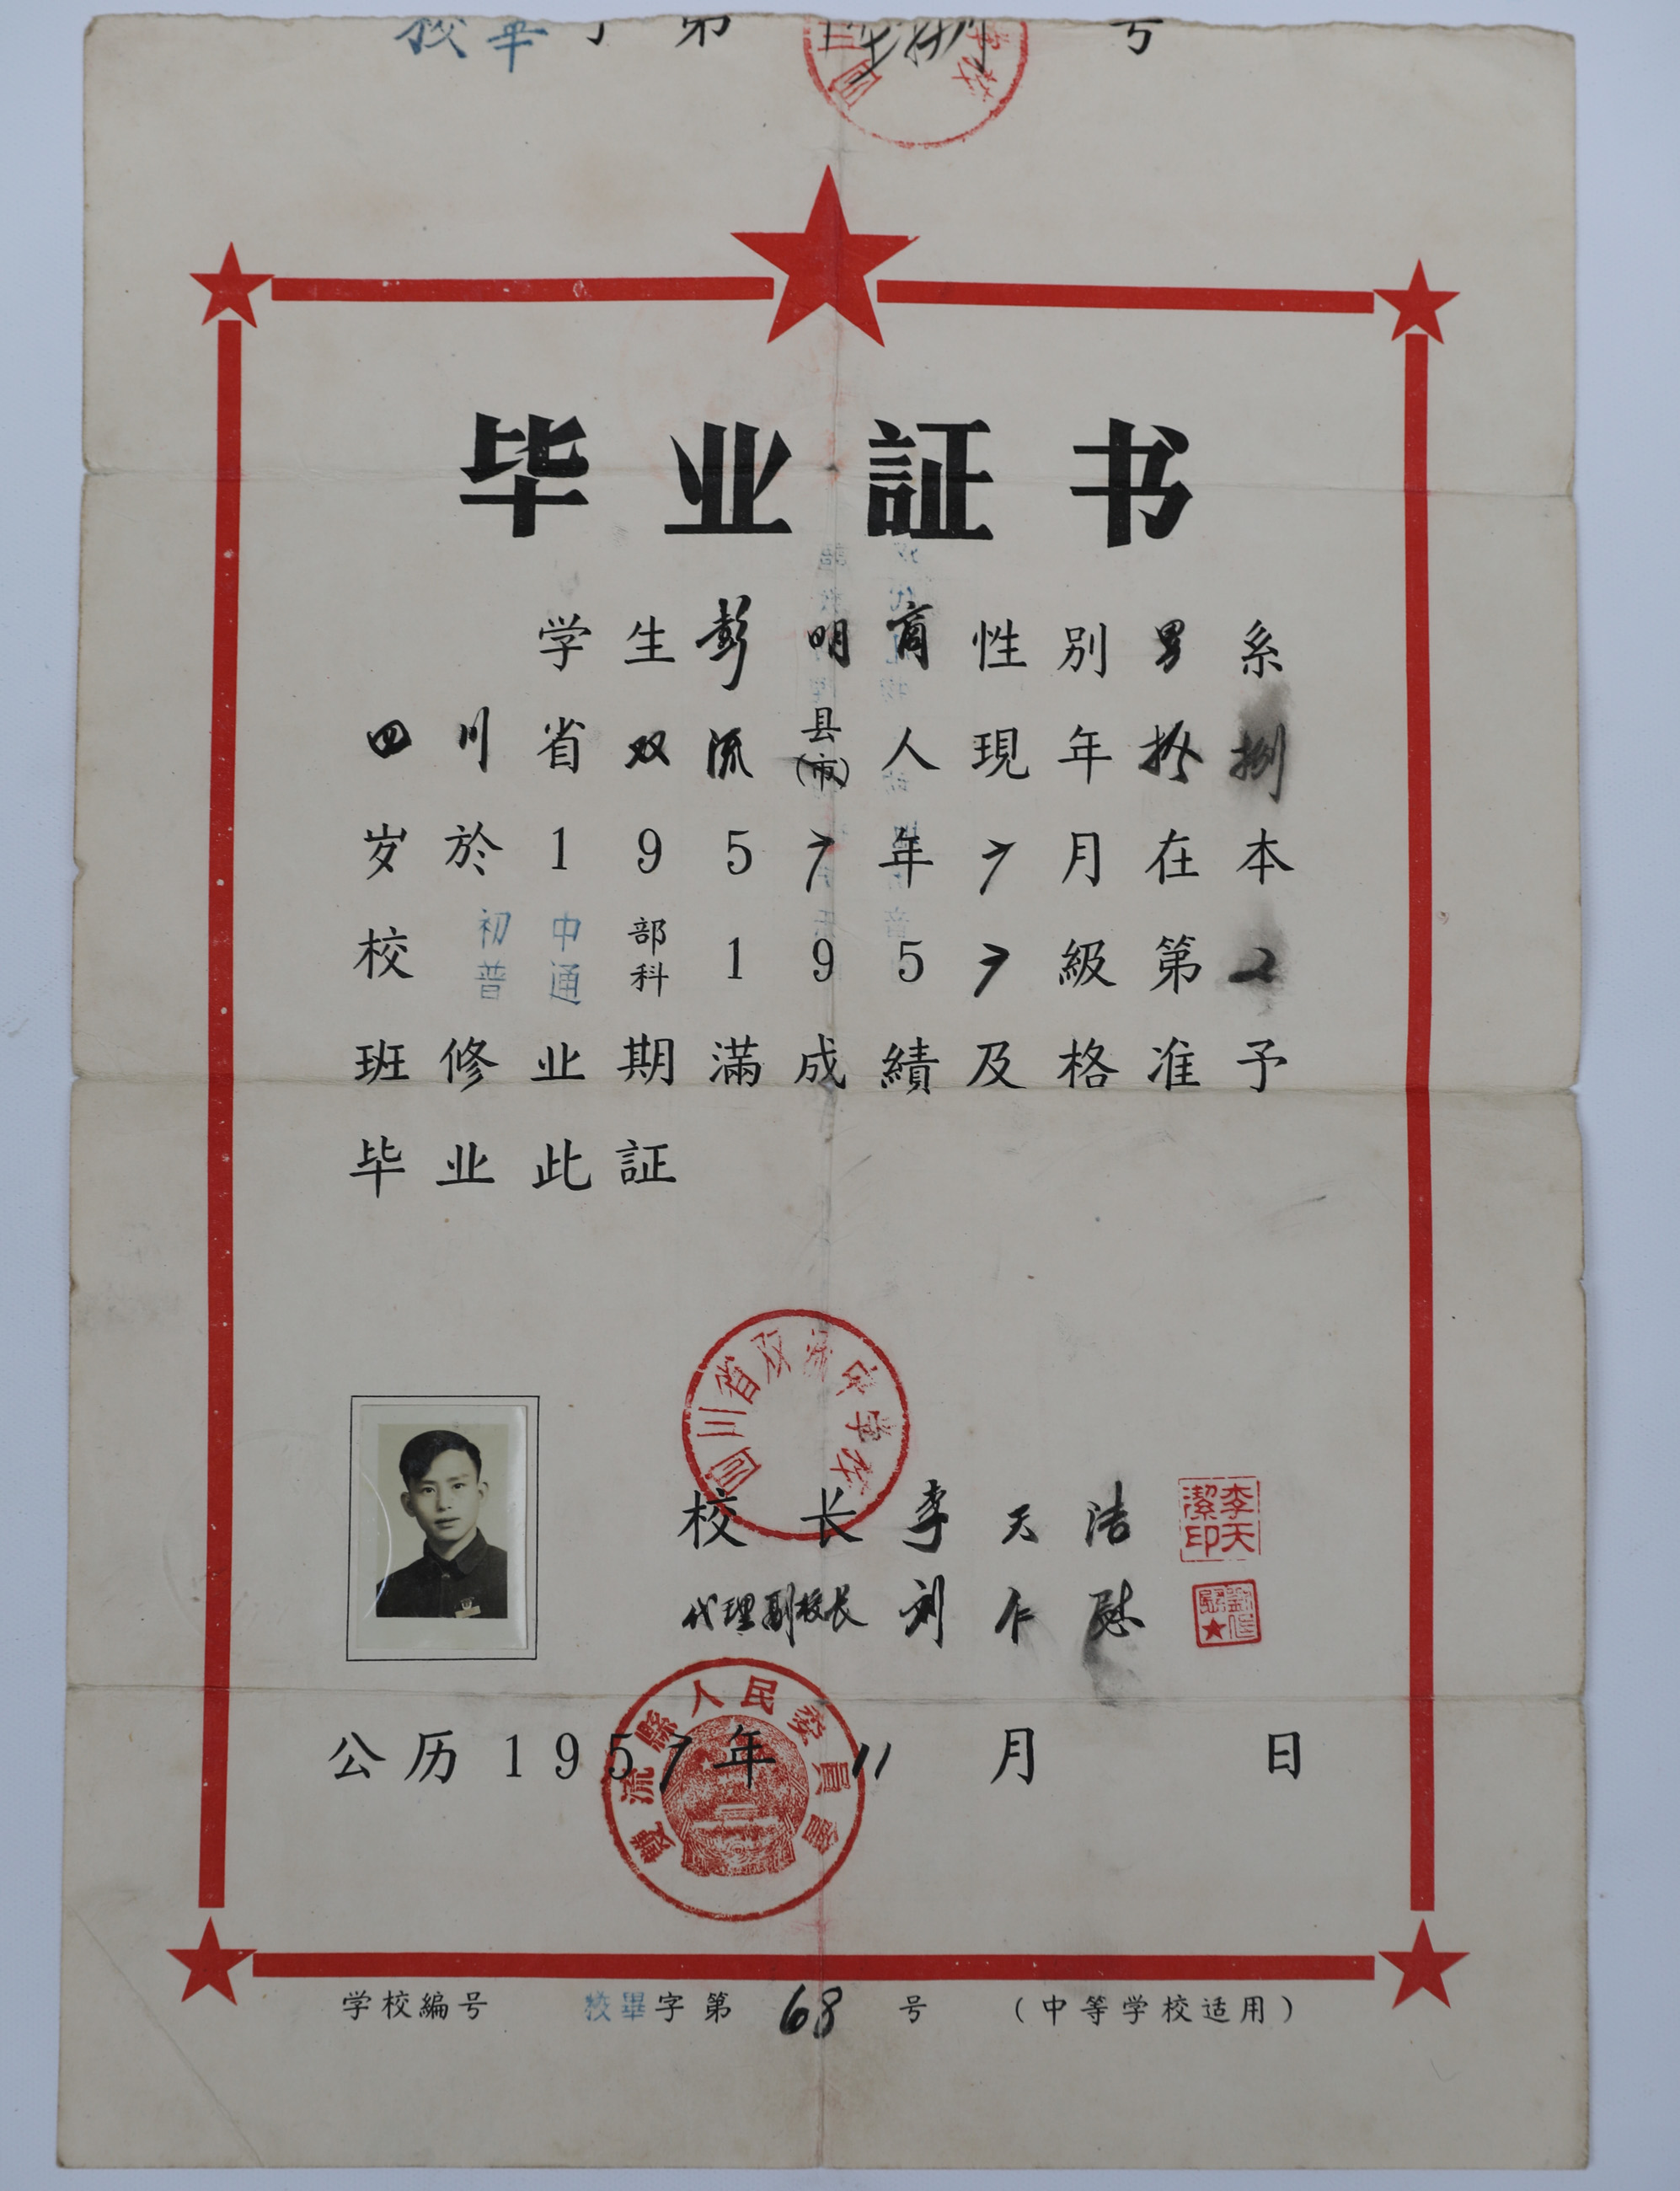 校畢字第 号
毕业証书
学生彭明商性别男系
四川省双流县(市)人現年拾捌
岁於1957年7月在本
校初中部普通科1957級第2
班修业期滿成績及格准予
毕业此証
四川省双流中学校
校长李天洁
李天潔印
代理副校长刘仁慰
雙流縣人民委員會
公历1957年11月 日
学校編号 校畢字第68号 (中等学校适用)